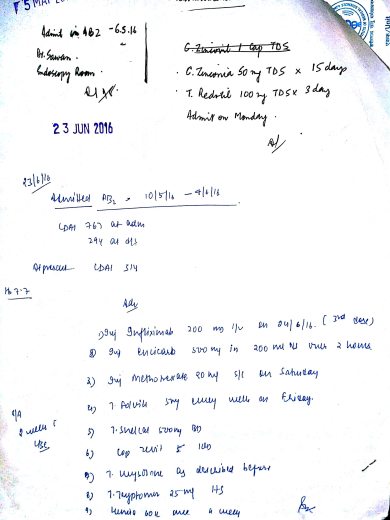 5 MAY 20
Admit in AB2 - 6.5.16
Dr. Sawan.
Endoscopy Room.
G. Zincovit 1 Cap TDS
C. Zinconia 50 mg TDS x 15 days
T. Redotil 100 mg TDS x 3 day
Admit on Monday.
23 JUN 2016
23/6/16
Admitted AB2 10/5/16 - 4/6/16
CDAI 767 at adm
294 at d/s
At present CDAI 314
Hb 7.7
Adv
1) Inj Infliximab 200 mg i/v on 04/6/16. (3rd dose)
2) Inj Encicarb 500 mg in 200 ml NS over 2 hours
3) Inj Methotrexate 20 mg s/c on Saturday
4) T. Folvite 5mg every week on Friday.
5) T. Shelcal 500mg BD
6) Cap 5
7) T. Wysolone as described before
8) T. Tryptomer 25 mg HS
9) 60K once a week
2 weeks